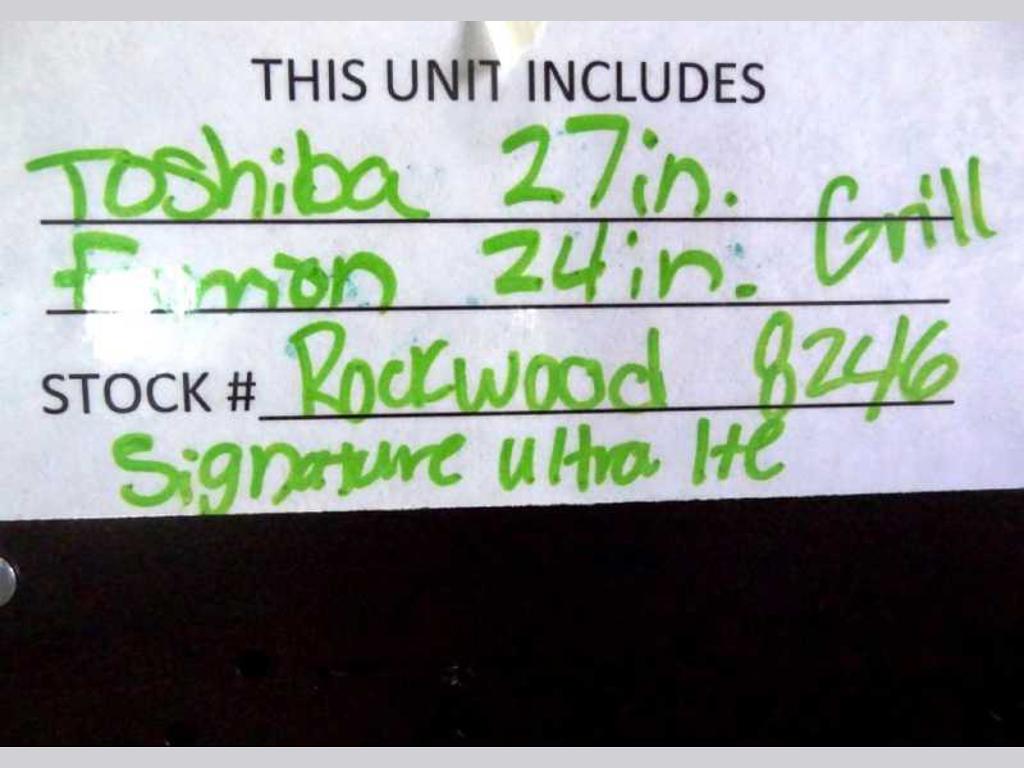 THIS UNIT INCLUDES
Toshiba 27in.
24in. Grill
STOCK # Rockwood 8246
Signature ultra lte